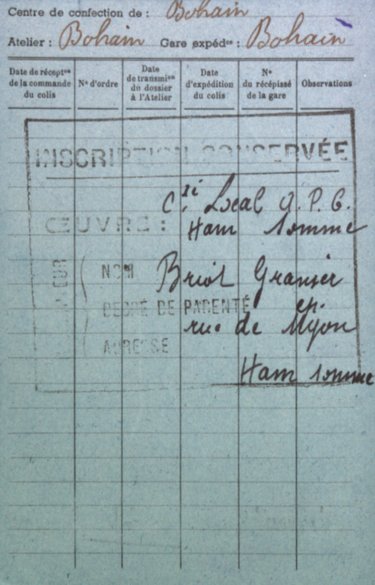 Centre de confection de : Bohain
Atelier : Bohain Gare expédre : Bohain
Date de récepton de la commande du colis
N° d'ordre
Date de transmion du dossier à l'Atelier
Date d'expédition du colis
N° du récépissé de la gare
Observations
INSCRIPTION CONSERVÉE
Local
ŒUVRE :
Ham Somme
NOM Briot Granier
DEGRÉ DE PARENTÉ ep.
rue de Nyon
ADRESSE
Ham Somme